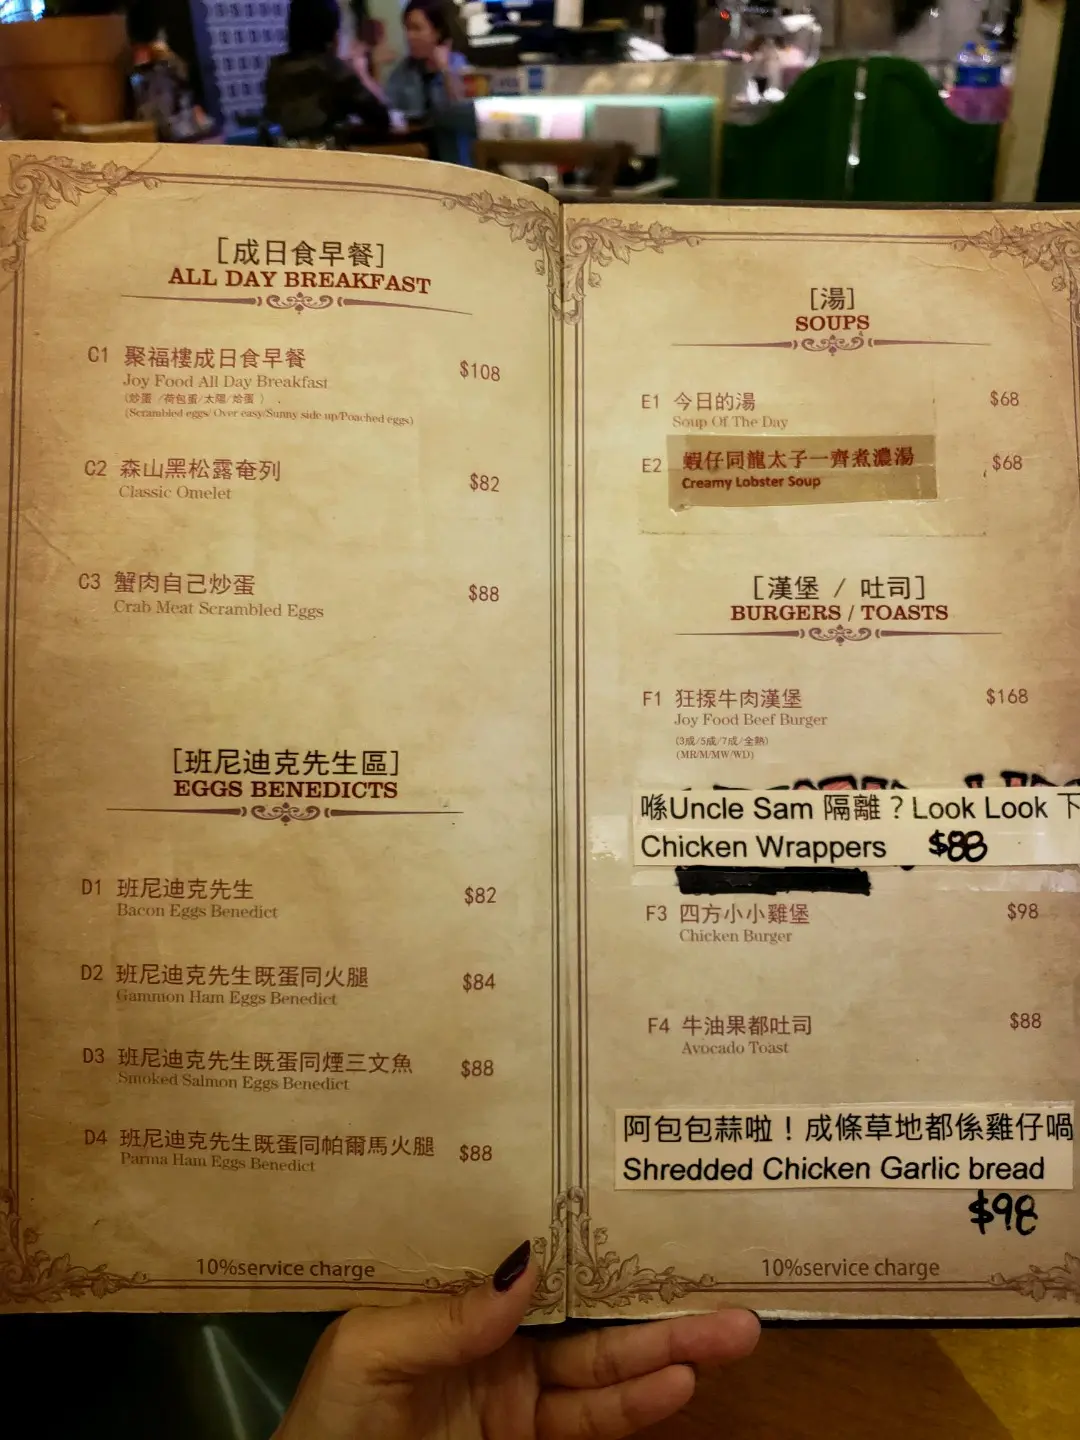 [成日食早餐]
ALL DAY BREAKFAST
C1 聚福樓成日食早餐 $108
Joy Food All Day Breakfast
(炒蛋 /荷包蛋/太陽/烚蛋 )
(Scrambled eggs/ Over easy/Sunny side up/Poached eggs)
C2 森山黑松露奄列 $82
Classic Omelet
C3 蟹肉自己炒蛋 $88
Crab Meat Scrambled Eggs
[班尼迪克先生區]
EGGS BENEDICTS
D1 班尼迪克先生 $82
Bacon Eggs Benedict
D2 班尼迪克先生既蛋同火腿 $84
Gammon Ham Eggs Benedict
D3 班尼迪克先生既蛋同煙三文魚 $88
Smoked Salmon Eggs Benedict
D4 班尼迪克先生既蛋同帕爾馬火腿 $88
Parma Ham Eggs Benedict
10%service charge
[湯]
SOUPS
E1 今日的湯 $68
Soup Of The Day
E2 蝦仔同龍太子一齊煮濃湯 $68
Creamy Lobster Soup
[漢堡 / 吐司]
BURGERS / TOASTS
F1 狂揼牛肉漢堡 $168
Joy Food Beef Burger
(3成/5成/7成/全熟)
(MR/M/MW/WD)
喺Uncle Sam 隔離？Look Look 下
Chicken Wrappers $88
F3 四方小小雞堡 $98
Chicken Burger
F4 牛油果都吐司 $88
Avocado Toast
阿包包蒜啦！成條草地都係雞仔喎
Shredded Chicken Garlic bread
$98
10%service charge